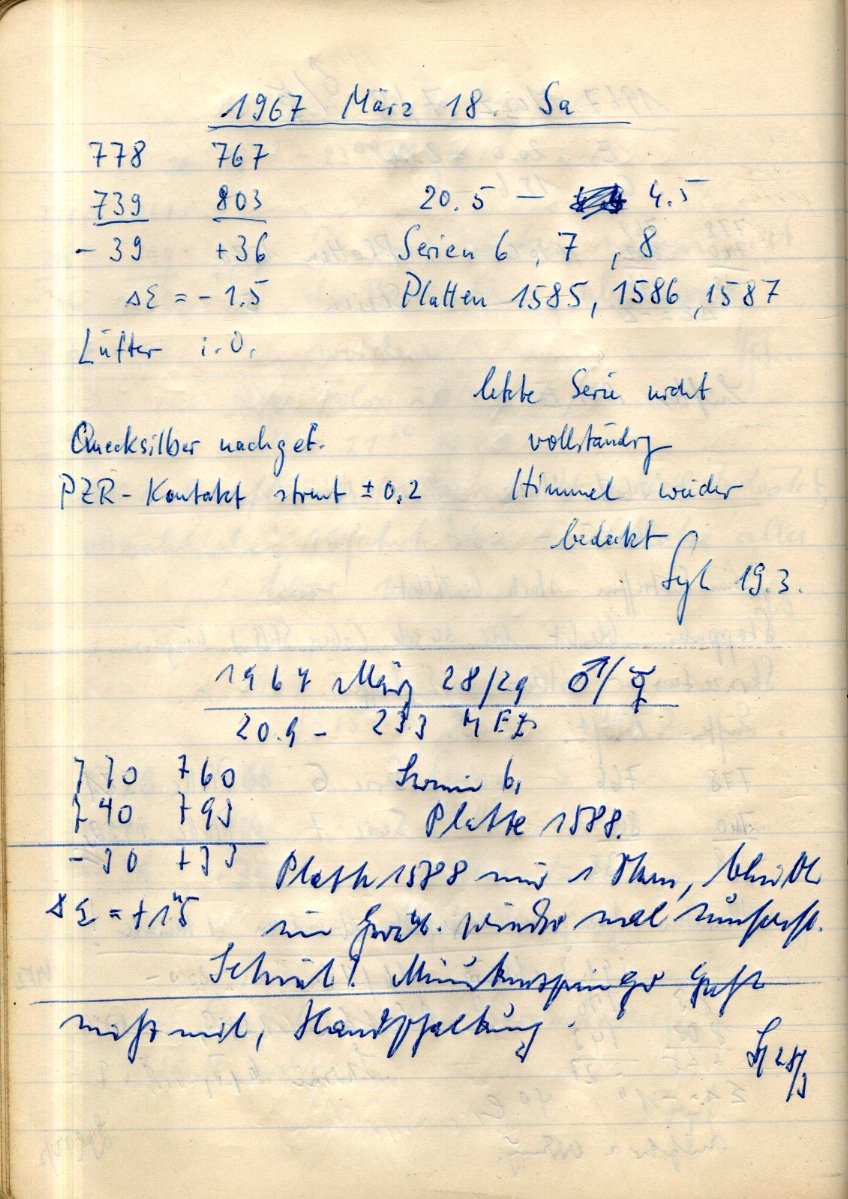 1967 März 18. Sa
778 767
739 803 20.5 — 4.5
- 39 +36 Serien 6, 7, 8
ΔΣ = - 1.5 Platten 1585, 1586, 1587
Lüfter i.O.
letzte Serie nicht
Quecksilber nachgef. vollständig
PZR-Kontakt streut ± 0.2 Himmel wieder
bedeckt
19.3.
1967 März 28/29 ♂/☿
20.9 - 23 3 MEZ
770 760 6,
740 793 Platte 1588.
- 30 +33 Platte 1588 nur 1 Stern,
ΔΣ = +1.5 wieder mal
geht
nicht mit, Handschaltung.
28/3